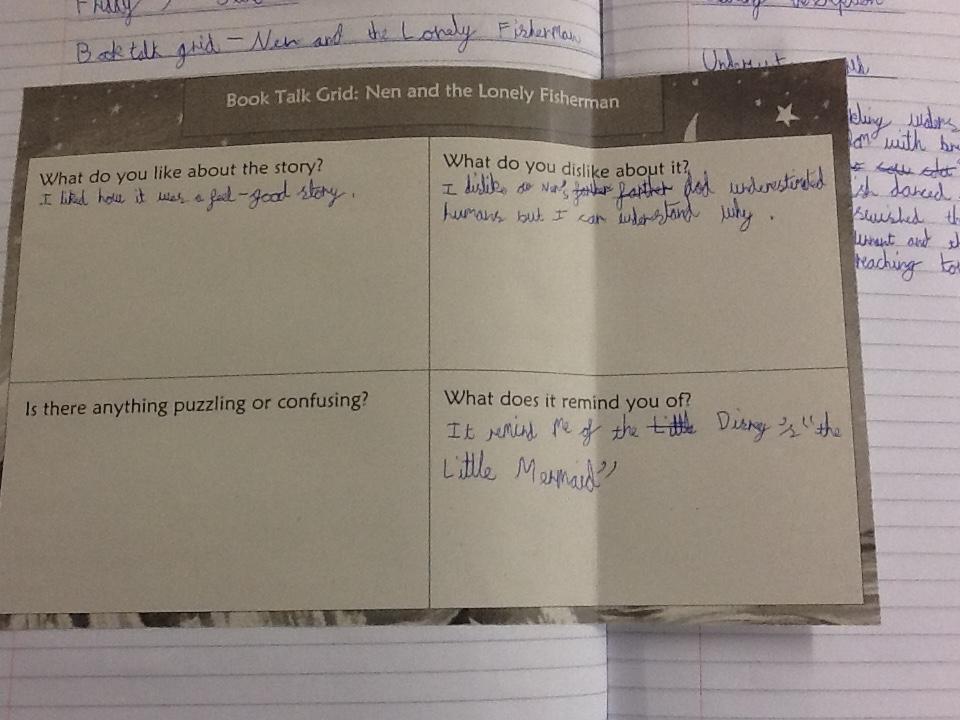 Friday
Book talk grid - Nen and the Lonely Fisherman
Book Talk Grid: Nen and the Lonely Fisherman
What do you like about the story?
I liked how it was a feel-good story.
What do you dislike about it?
I dislike Nen's father farther dad underestimated
humans but I can understand why.
Is there anything puzzling or confusing?
What does it remind you of?
It remind me of the Little Disney's "the
Little Mermaid"
with
danced
swished
and
reaching